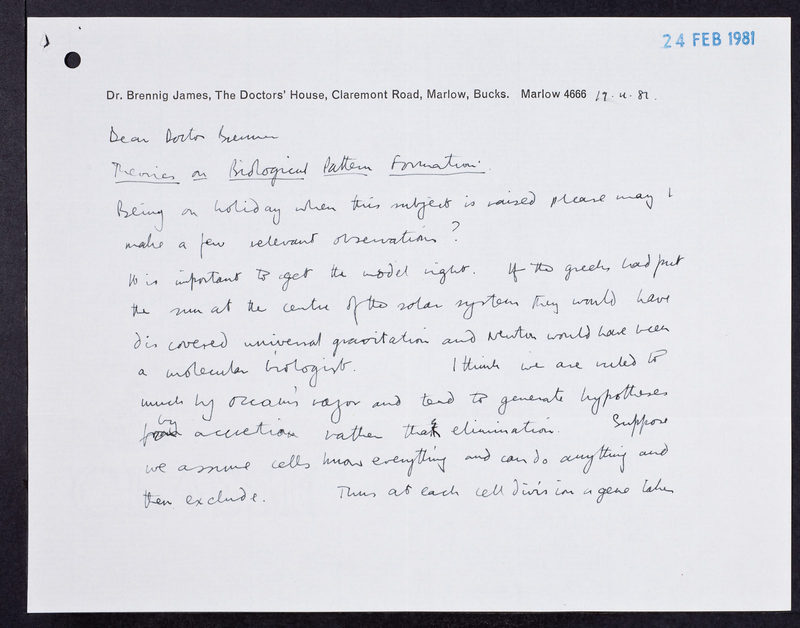 24 FEB 1981
Dr. Brennig James, The Doctors' House, Claremont Road, Marlow, Bucks. Marlow 4666
Dear Doctor Brenner
Theories on Biological Pattern Formation.
Being on holiday when this subject is raised please may I
make a few relevant observations?
It is important to get the model right. If the greeks had put
the sun at the centre of the solar system they would have
discovered universal gravitation and Newton would have been
a molecular biologist. I think we are ruled to
much by Occam's razor and tend to generate hypotheses
by accretion rather than elimination. Suppose
we assume cells know everything and can do anything and
then exclude. Thus at each cell division a gene takes